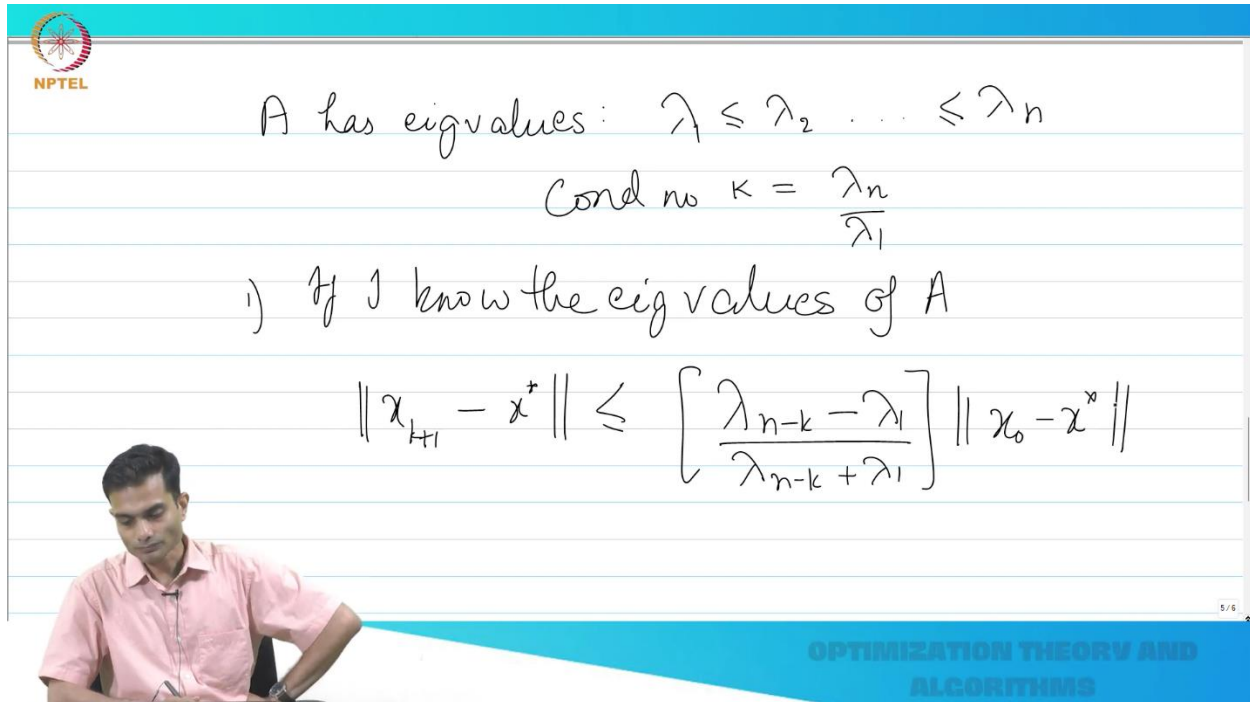 NPTEL
A has eigvalues: λ₁ ≤ λ₂ .... ≤ λn
Cond no κ = λn / λ₁
1) If I know the eigvalues of A
‖x_{k+1} − x*‖ ≤ [ (λ_{n-k} − λ₁) / (λ_{n-k} + λ₁) ] ‖x₀ − x*‖
5/6
OPTIMIZATION THEORY AND
ALGORITHMS